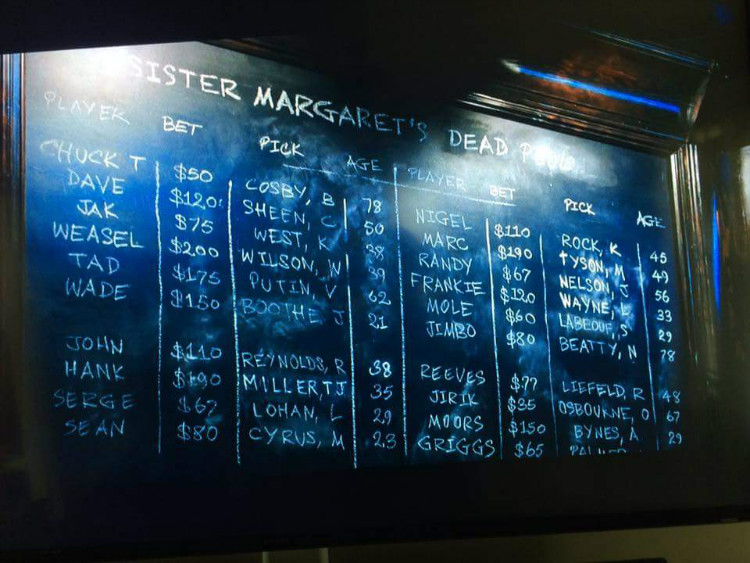 SISTER MARGARET'S DEAD POOL
PLAYER BET PICK AGE PLAYER BET PICK AGE
CHUCK T $50 COSBY, B 78 NIGEL $110 ROCK, K 45
DAVE $120 SHEEN, C 50 MARC $190 TYSON, M 49
JAK $75 WEST, K 38 RANDY $67 NELSON, J 56
WEASEL $200 WILSON, W 39 FRANKIE $120 WAYNE, L 33
TAD $175 PUTIN, V 62 MOLE $60 LABEOUF, S 29
WADE $150 BOOTHE J 21 JIMBO $80 BEATTY, N 78
JOHN $110 REYNOLDS, R 38 REEVES $77 LIEFELD, R 48
HANK $190 MILLER, TJ 35 JIRIK $35 OSBOURNE, O 67
SERGE $67 LOHAN, L 29 MOORS $150 BYNES, A 29
SEAN $80 CYRUS, M 23 GRIGGS $65